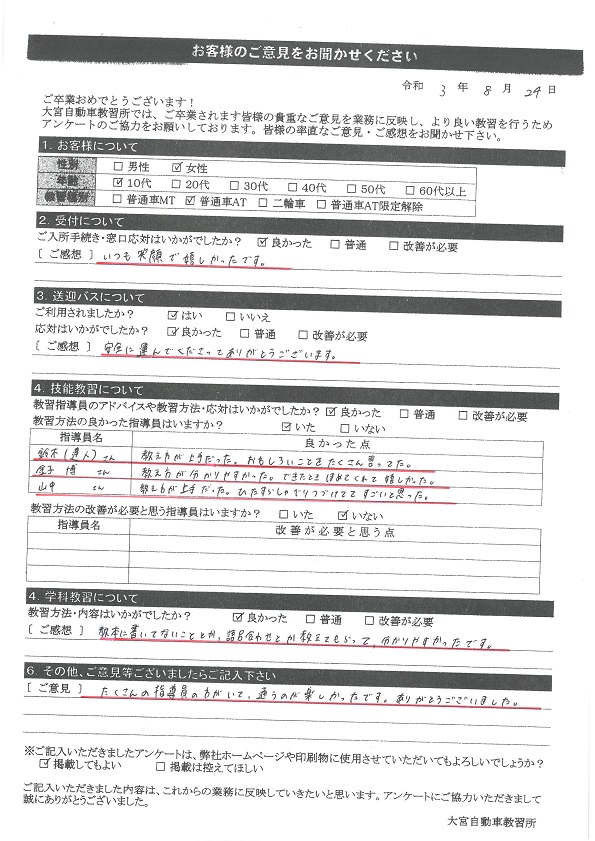 お客様のご意見をお聞かせください
令和 3 年 8 月 24 日
ご卒業おめでとうございます！
大宮自動車教習所では、ご卒業されます皆様の貴重なご意見を業務に反映し、より良い教習を行うため
アンケートのご協力をお願いしております。皆様の率直なご意見・ご感想をお聞かせ下さい。
1. お客様について
性別 □ 男性 ☑ 女性
年齢 ☑ 10代 □ 20代 □ 30代 □ 40代 □ 50代 □ 60代以上
教習種別 □ 普通車MT ☑ 普通車AT □ 二輪車 □ 普通車AT限定解除
2. 受付について
ご入所手続き・窓口応対はいかがでしたか？ ☑ 良かった □ 普通 □ 改善が必要
［ ご感想 ］ いつも笑顔で嬉しかったです。
3. 送迎バスについて
ご利用されましたか？ ☑ はい □ いいえ
応対はいかがでしたか？ ☑ 良かった □ 普通 □ 改善が必要
［ ご感想 ］ 安全に運んでくださってありがとうございます。
4. 技能教習について
教習指導員のアドバイスや教習方法・応対はいかがでしたか？ ☑ 良かった □ 普通 □ 改善が必要
教習方法の良かった指導員はいますか？ ☑ いた □ いない
指導員名 良かった点
鈴木(達人)さん 教え方が上手だった。おもしろいことをたくさん言ってた。
金子 博 さん 教え方が分かりやすかった。できたときほめてくれて嬉しかった。
山中 さん 教え方が上手だった。ひたすらしゃべりつづけててすごいと思った。
教習方法の改善が必要と思う指導員はいますか？ □ いた ☑ いない
指導員名 改善が必要と思う点
4. 学科教習について
教習方法・内容はいかがでしたか？ ☑ 良かった □ 普通 □ 改善が必要
［ ご感想 ］ 教本に書いてないこととか、語呂合わせとか教えてもらって、分かりやすかったです。
6. その他、ご意見等ございましたらご記入下さい
［ ご意見 ］ たくさんの指導員の方がいて、通うのが楽しかったです。ありがとうございました。
※ご記入いただきましたアンケートは、弊社ホームページや印刷物に使用させていただいてもよろしいでしょうか？
☑ 掲載してもよい □ 掲載は控えてほしい
ご記入いただきました内容は、これからの業務に反映していきたいと思います。アンケートにご協力いただきまして
誠にありがとうございました。
大宮自動車教習所